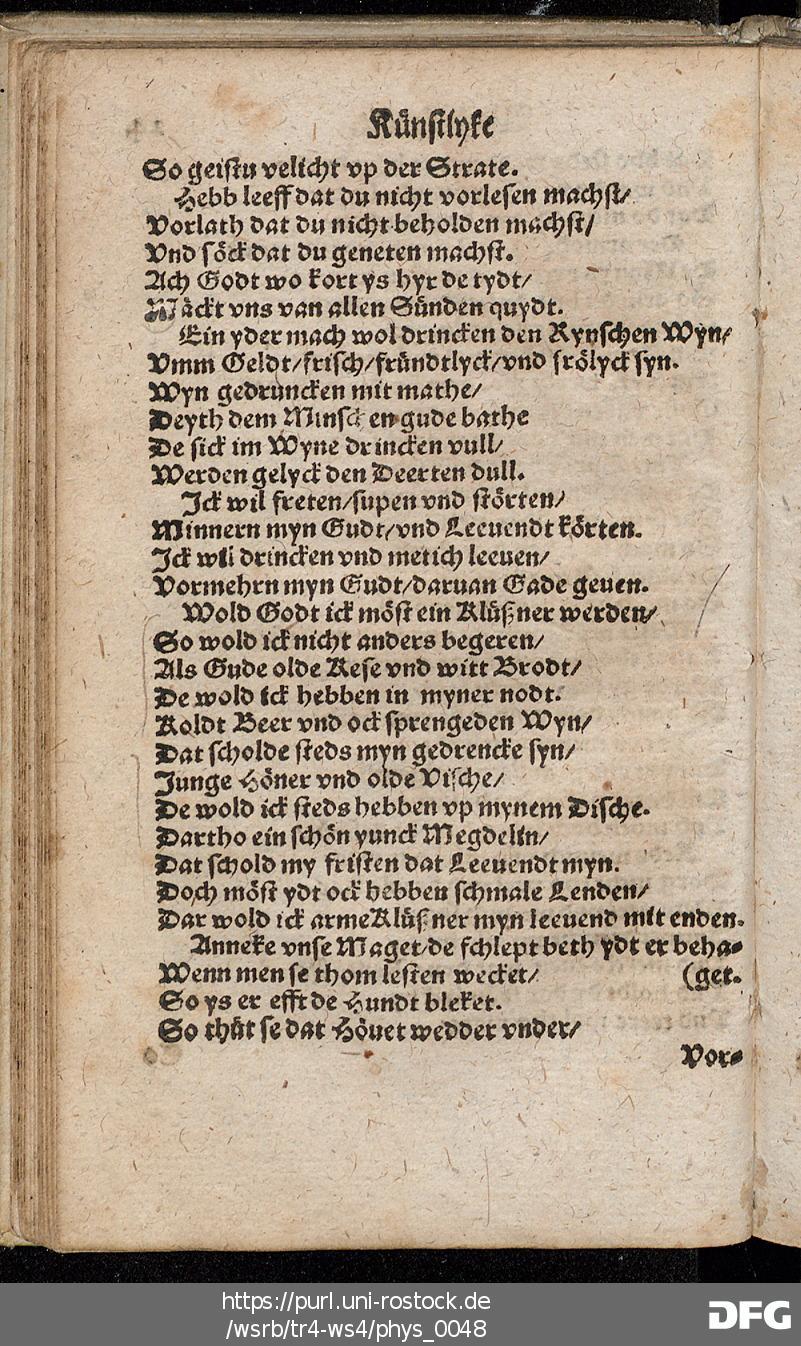 Künstlyke
So geistu velicht vp der Strate.
Hebb leeff dat du nicht vorlesen machst/
Vorlath dat du nicht beholden machst/
Vnd söck dat du geneten machst.
Ach Godt wo kort ys hyr de tydt/
Mäckt vns van allen Sünden quydt.
Ein yder mach wol drincken den Rynschen Wyn/
Vmm Geldt/frisch/fründtlyck/vnd frölyck syn.
Wyn gedruncken mit mathe/
Deyth dem Minschen gude bathe
De sick im Wyne drincken vull/
Werden gelyck den Deerten dull.
Ick wil freten/supen vnd störten/
Minnern myn Gudt/vnd Leeuendt körten.
Ick wil drincken vnd metich leeuen/
Vormehrn myn Gudt/daruan Gade geuen.
Wold Godt ick möst ein Klüßner werden/
So wold ick nicht anders begeren/
Als Gude olde Kese vnd witt Brodt/
De wold ick hebben in myner nodt.
Koldt Beer vnd ock sprengeden Wyn/
Dat scholde steds myn gedrencke syn/
Junge Höner vnd olde Vische/
De wold ick steds hebben vp mynem Dische.
Dartho ein schön yunck Megdelin/
Dat schold my fristen dat Leeuendt myn.
Doch möst ydt ock hebben schmale Lenden/
Dar wold ick arme Klüßner myn leeuend mit enden.
Anneke vnse Maget/de schlept beth ydt er beha-
Wenn men se thom lesten wecket/ (get.
So ys er efft de Hundt bleket.
So thüt se dat Höuet wedder vnder/
Vor-
https://purl.uni-rostock.de
/wsrb/tr4-ws4/phys_0048
DFG